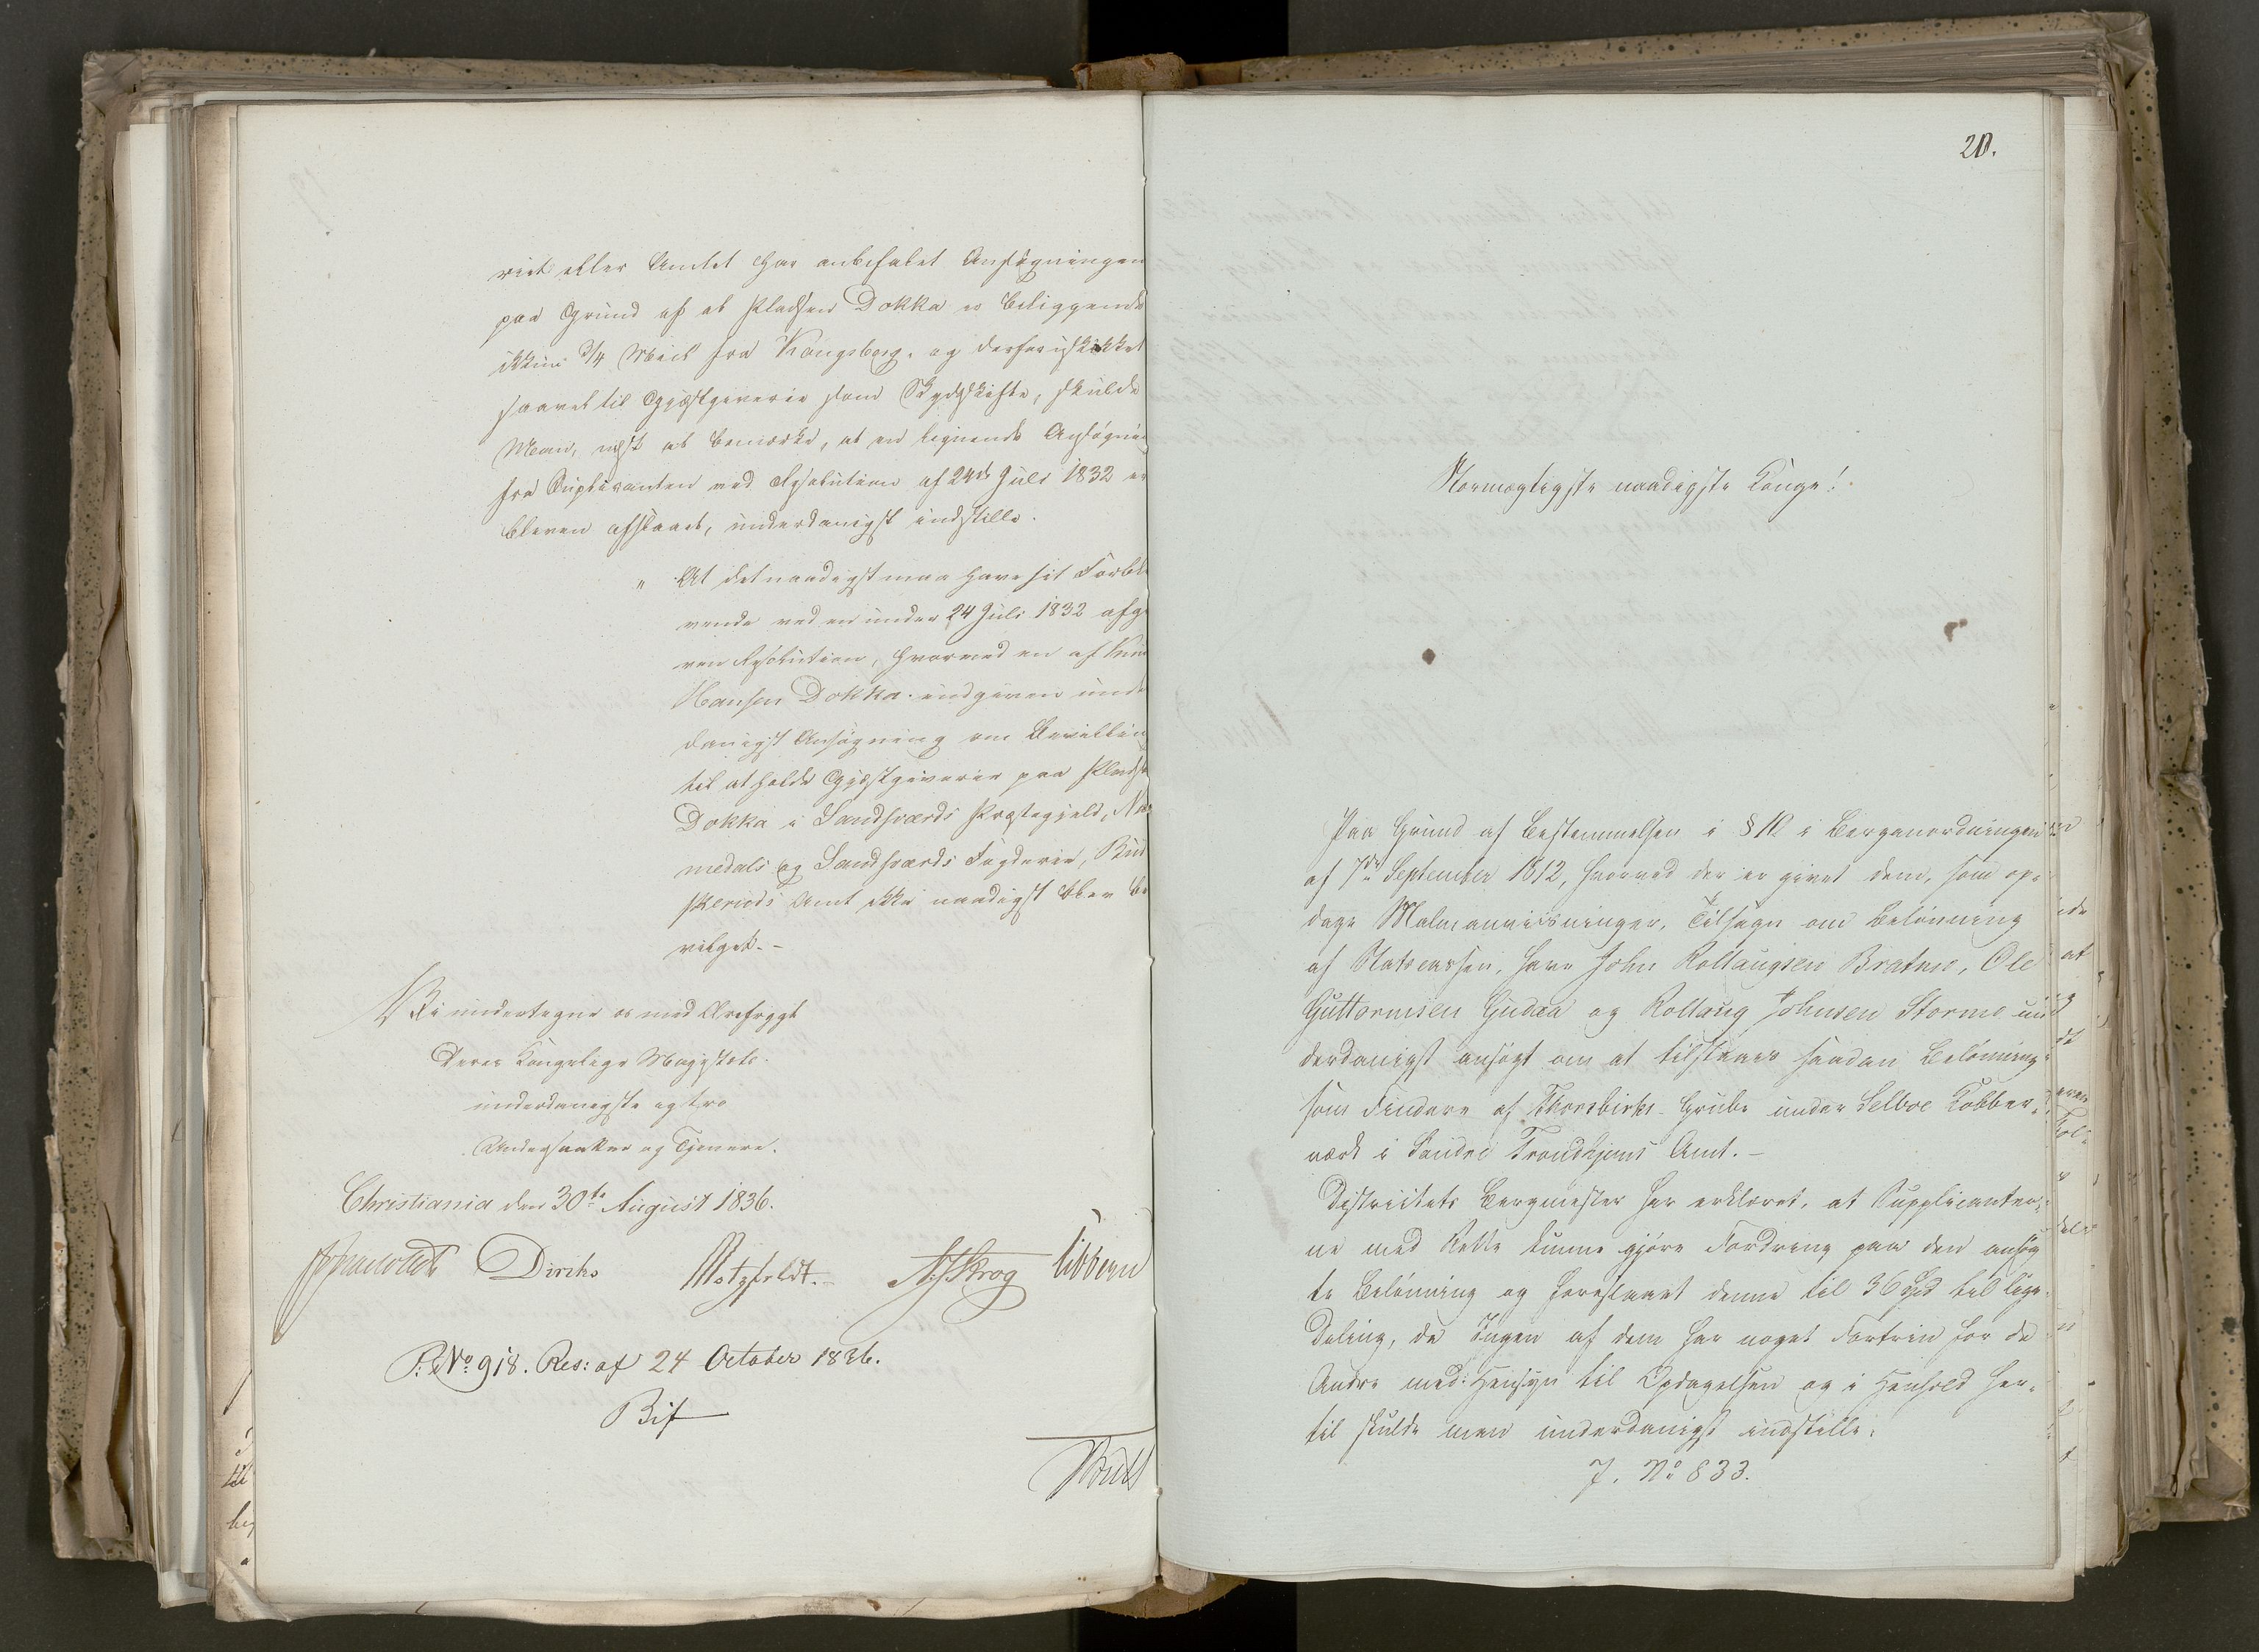 riet eller Amtet har anbefalet Ansøgningen
paa Grund af at Pladsen Dokka er beliggende
ikkun 3/4 Miil fra Kongsberg, og derfor uskikket
saavel til Gjæstgiverie som Skydsskifte, skulde
Man, næst at bemærke, at en lignende Ansøgnin
fra Suplicanten ved Resolution af 24de Juli 1832 er
bleven afslaaet, underdanigst indstille.
" At det naadigst maa have sit Forbli
vende ved en under 24 Juli 1832 afgi
ven Resolution, hvorved en af
Hansen Dokka indgiven unde
danigst Ansøgning om Bevillin
til at holde Gjæstgiverie paa Pladse
Dokka i Sandsværds Præstegjeld, Nu
medals og Sandsværds Fogderie, Bus
keruds Amt ikke naadigst blev be
vilget. -
Vi undertegne os med Ærefrygt
Deres Kongelige Majestæts
underdanigste og tro
Undersaatter og Tjenere.
Christiania den 30te August 1836.
Diriks Motzfeldt. Krog Sibbern
P: No 918. Res: af 24 October 1836.
Bif
20.
Stormægtigste naadigste Konge!
Paa Grund af Bestemmelsen i § 10 i Berganordningen
af 7de September 1812, hvorved der er givet dem, som op-
dage Malmanviisninger, Tilsagn om Belønning
af Statscassen, have John Rollaugsen Bratmo, Ole
Guttormsen Gudaa og Rollaug Johnsen Stormo un
derdanigst ansøgt om at tilstaaes saadan Belønning
som Findere af Thorsbirks Grube under Selboe Kobber-
værk i Søndre Trondhjems Amt. -
Districtets Bergmester har erklæret, at Supplicanter-
ne med Rette kunne gjøre Fordring paa den ansøg
te Belønning og foreslaaet denne til 36 Spd til lige
Deling, da Ingen af dem har noget Fortrin for de
Andre med Hensyn til Opdagelsen og i Henhold her-
til skulde man underdanigst indstille:
J. No 833.